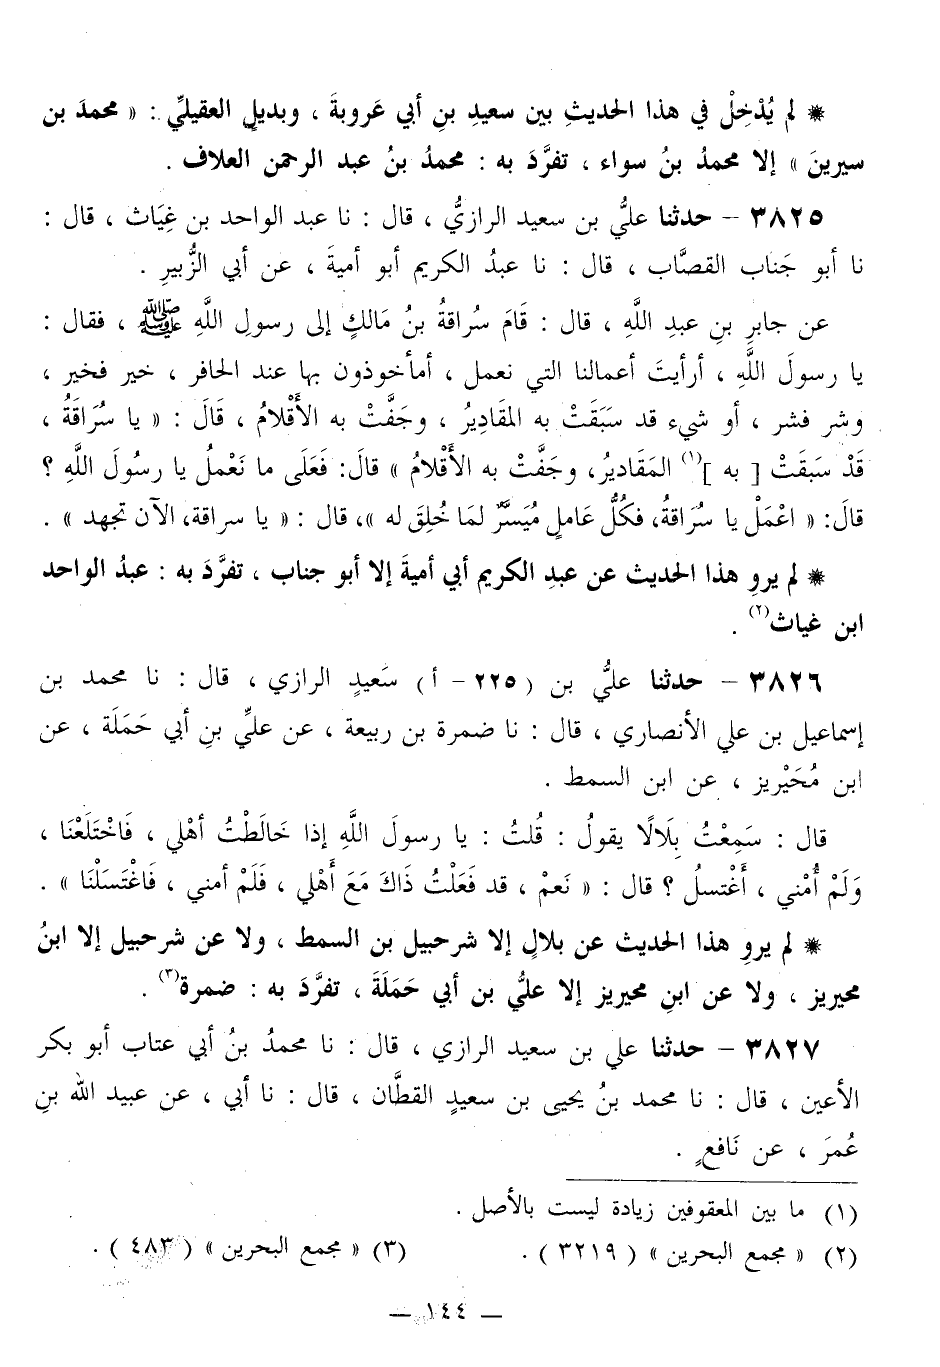 * لم يُدْخِلْ في هذا الحديثِ بين سعيدِ بنِ أبي عَروبةَ ، وبديلٍ العقيليِّ : « محمدَ بن
سيرينَ » إلا محمدُ بنُ سواء ، تفرَّدَ به : محمدُ بنُ عبد الرحمن العلاف .
٣٨٢٥ – حدثنا عليُّ بن سعيد الرازيُّ ، قال : نا عبد الواحد بن غِيَاث ، قال :
نا أبو جَناب القصَّاب ، قال : نا عبدُ الكريم أبو أميةَ ، عن أبي الزُّبيرِ .
عن جابرِ بنِ عبدِ اللَّهِ ، قال : قَامَ سُراقةُ بنُ مَالكٍ إلى رسولِ اللَّهِ ﷺ ، فقال :
يا رسولَ اللَّهِ ، أرأيتَ أعمالنا التي نعمل ، أمأخوذون بها عند الحافر ، خير فخير ،
وشر فشر ، أو شيء قد سَبَقَتْ به المقَادِيرُ ، وجَفَّتْ به الأَقْلامُ ، قَالَ : « يا سُرَاقَةُ ،
قَدْ سَبَقَتْ [ به ](١) المَقَاديرُ، وجَفَّتْ به الأَقْلامُ » قالَ: فَعَلَى ما نَعْملُ يا رسُولَ اللَّهِ ؟
قالَ: « اعْمَلْ يا سُرَاقةُ، فكُلُّ عَاملٍ مُيَسَّرٌ لمَا خُلِقَ له »، قال : « يا سراقة، الآن تجهد » .
* لم يروِ هذا الحديث عن عبدِ الكريم أبي أميةَ إلا أبو جناب ، تفرَّدَ به : عبدُ الواحد
ابن غياث(٢) .
٣٨٢٦ – حدثنا عليُّ بن (٢٢٥ – أ) سَعيدٍ الرازي ، قال : نا محمد بن
إسماعيل بن علي الأنصاري ، قال : نا ضمرة بن ربيعة ، عن عليِّ بنِ أبي حَمَلَة ، عن
ابن مُحَيْريز ، عن ابن السمط .
قال : سَمِعْتُ بِلَالًا يقولُ : قُلتُ : يا رسولَ اللَّهِ إذا خَالَطْتُ أهْلي ، فَاخْتَلَعْنَا ،
وَلَمْ أُمْني ، أَغْتسلُ ؟ قال : « نَعمْ ، قد فَعَلْتُ ذَاكَ مَعَ أَهْلي ، فَلَمْ أمني ، فَاغْتَسَلْنَا » .
* لم يروِ هذا الحديث عن بلالٍ إلا شرحبيل بن السمط ، ولا عن شرحبيل إلا ابنُ
محيريز ، ولا عن ابنِ محيريز إلا عليُّ بن أبي حَمَلَةَ ، تفرَّدَ به : ضمرة(٣) .
٣٨٢٧ – حدثنا علي بن سعيد الرازي ، قال : نا محمدُ بنُ أبي عتاب أبو بكر
الأعين ، قال : نا محمد بنُ يحيى بن سعيدٍ القطَّان ، قال : نا أبي ، عن عبيد الله بنِ
عُمرَ ، عن نَافعٍ .
(١) ما بين المعقوفين زيادة ليست بالأصل .
(٢) « مجمع البحرين » ( ٣٢١٩ ) . (٣) « مجمع البحرين » ( ٤٨٣ ) .
— ١٤٤ —